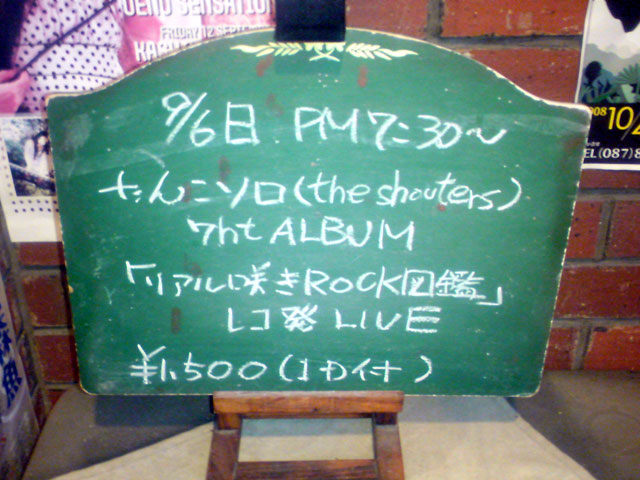 DEND SENSATION
FRIDAY 12 SEPTE
9/6日 PM7:30～
ナンコソロ(the shouters)
7ht ALBUM
「リアルに咲きROCK図鑑」
レコ発 LIVE
¥1.500(1Dイナ)
2008 10/2
TEL(087)8